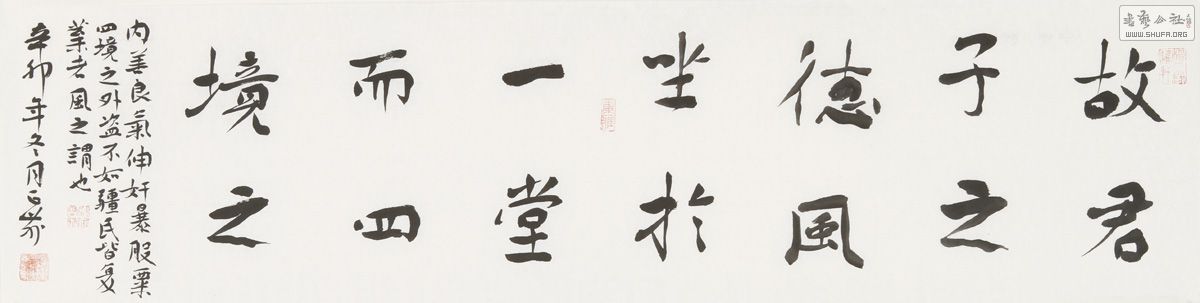 故君
子之
德風
坐於
一堂
而四
境之
内善良氣伸奸暴股栗
四境之外盗不如疆民皆复
業者風之謂也
辛卯年冬月
書藝公社
WWW.SHUFA.ORG